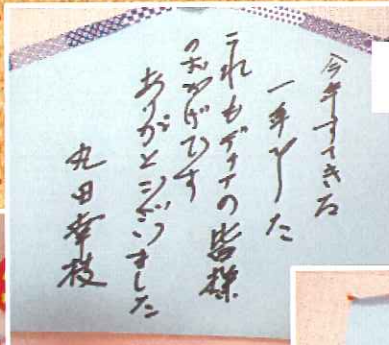 今年すてきな
一年でした
これもデイアの皆様
のおかげです
ありがとうございました
丸田幸枝